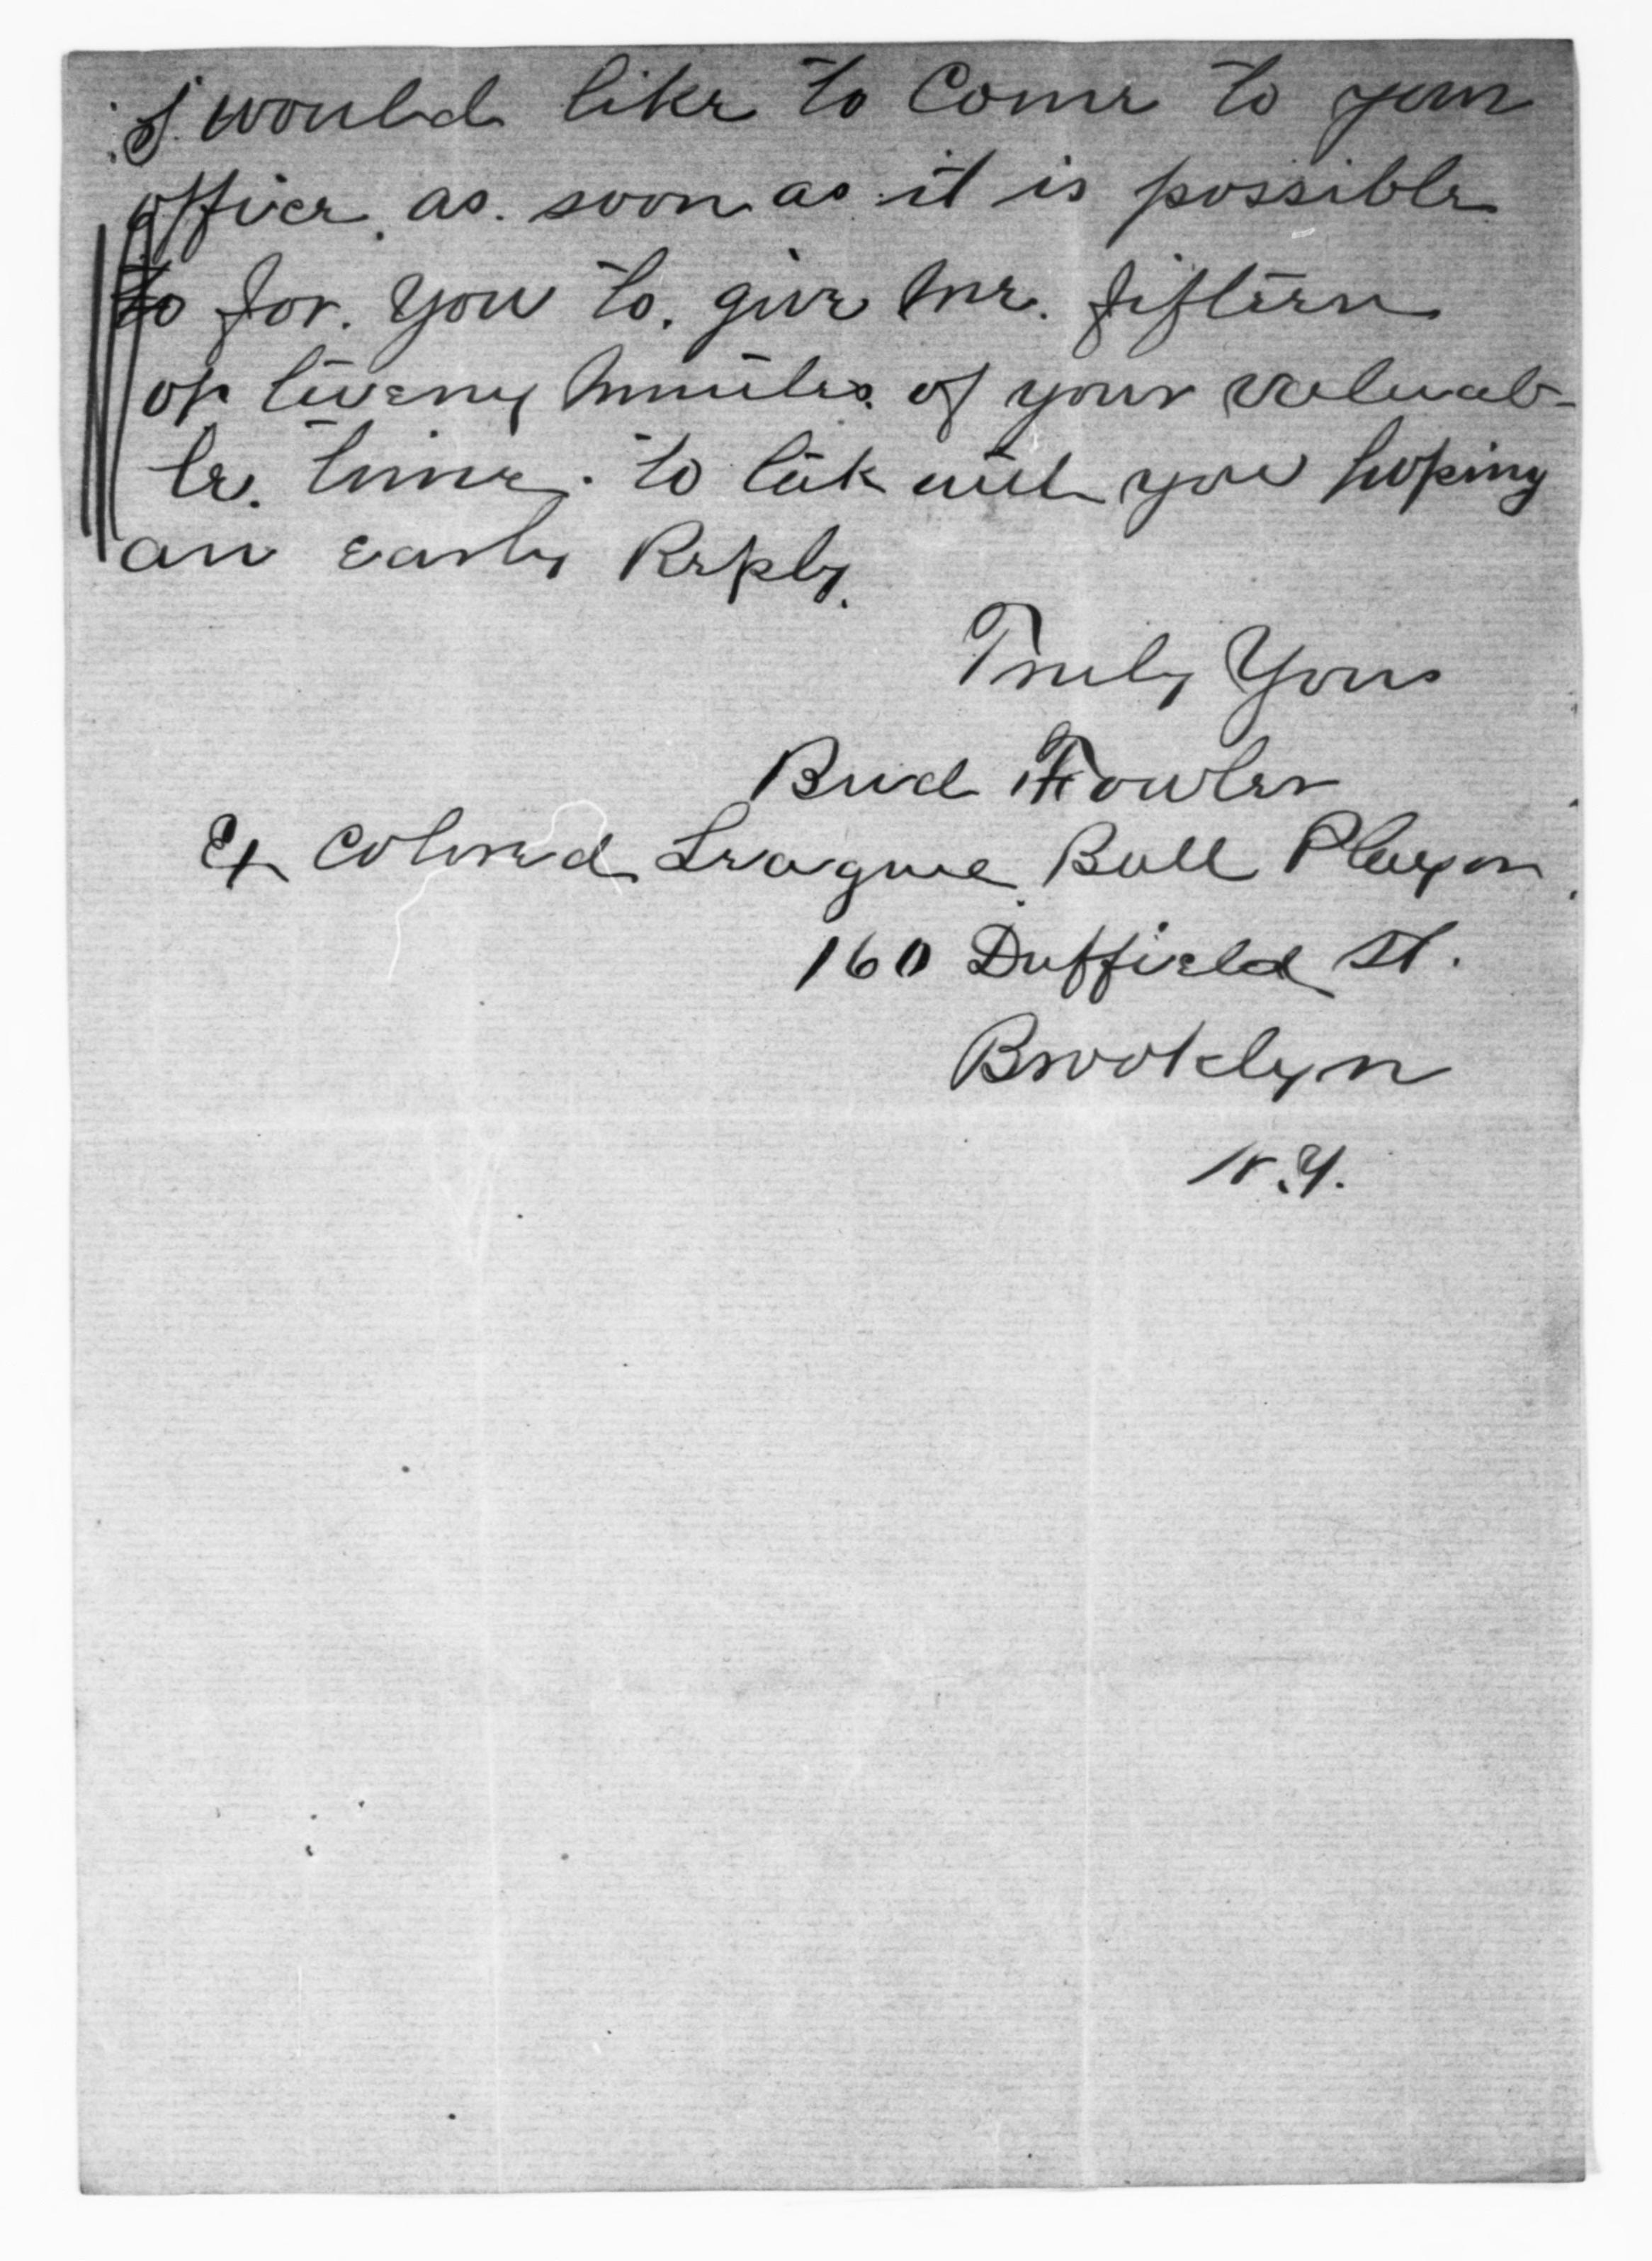 I would like to Come to your
office. as. soon as it is possible
to for. you to. give me. fifteen
or tweny minutes. of your valuab-
le. time. to talk with you hoping
an early Reply.
Truly Yours
Bud Fowler
Ex Colored League Ball Player.
160 Duffield St.
Brooklyn
N.Y.